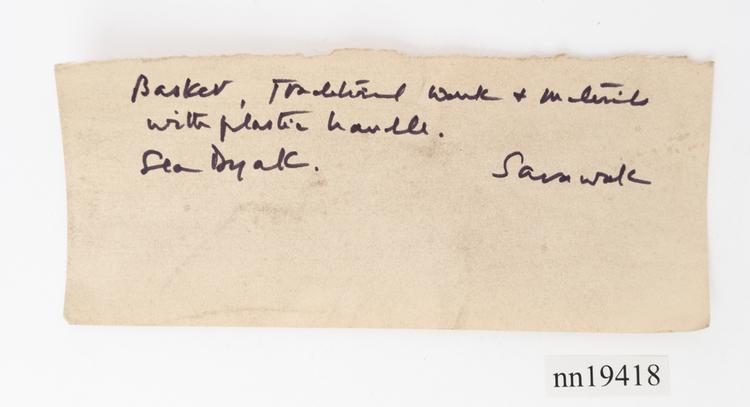 Basket, Traditional work + materials
with plastic handle.
Sea Dyak. Sarawak
nn19418